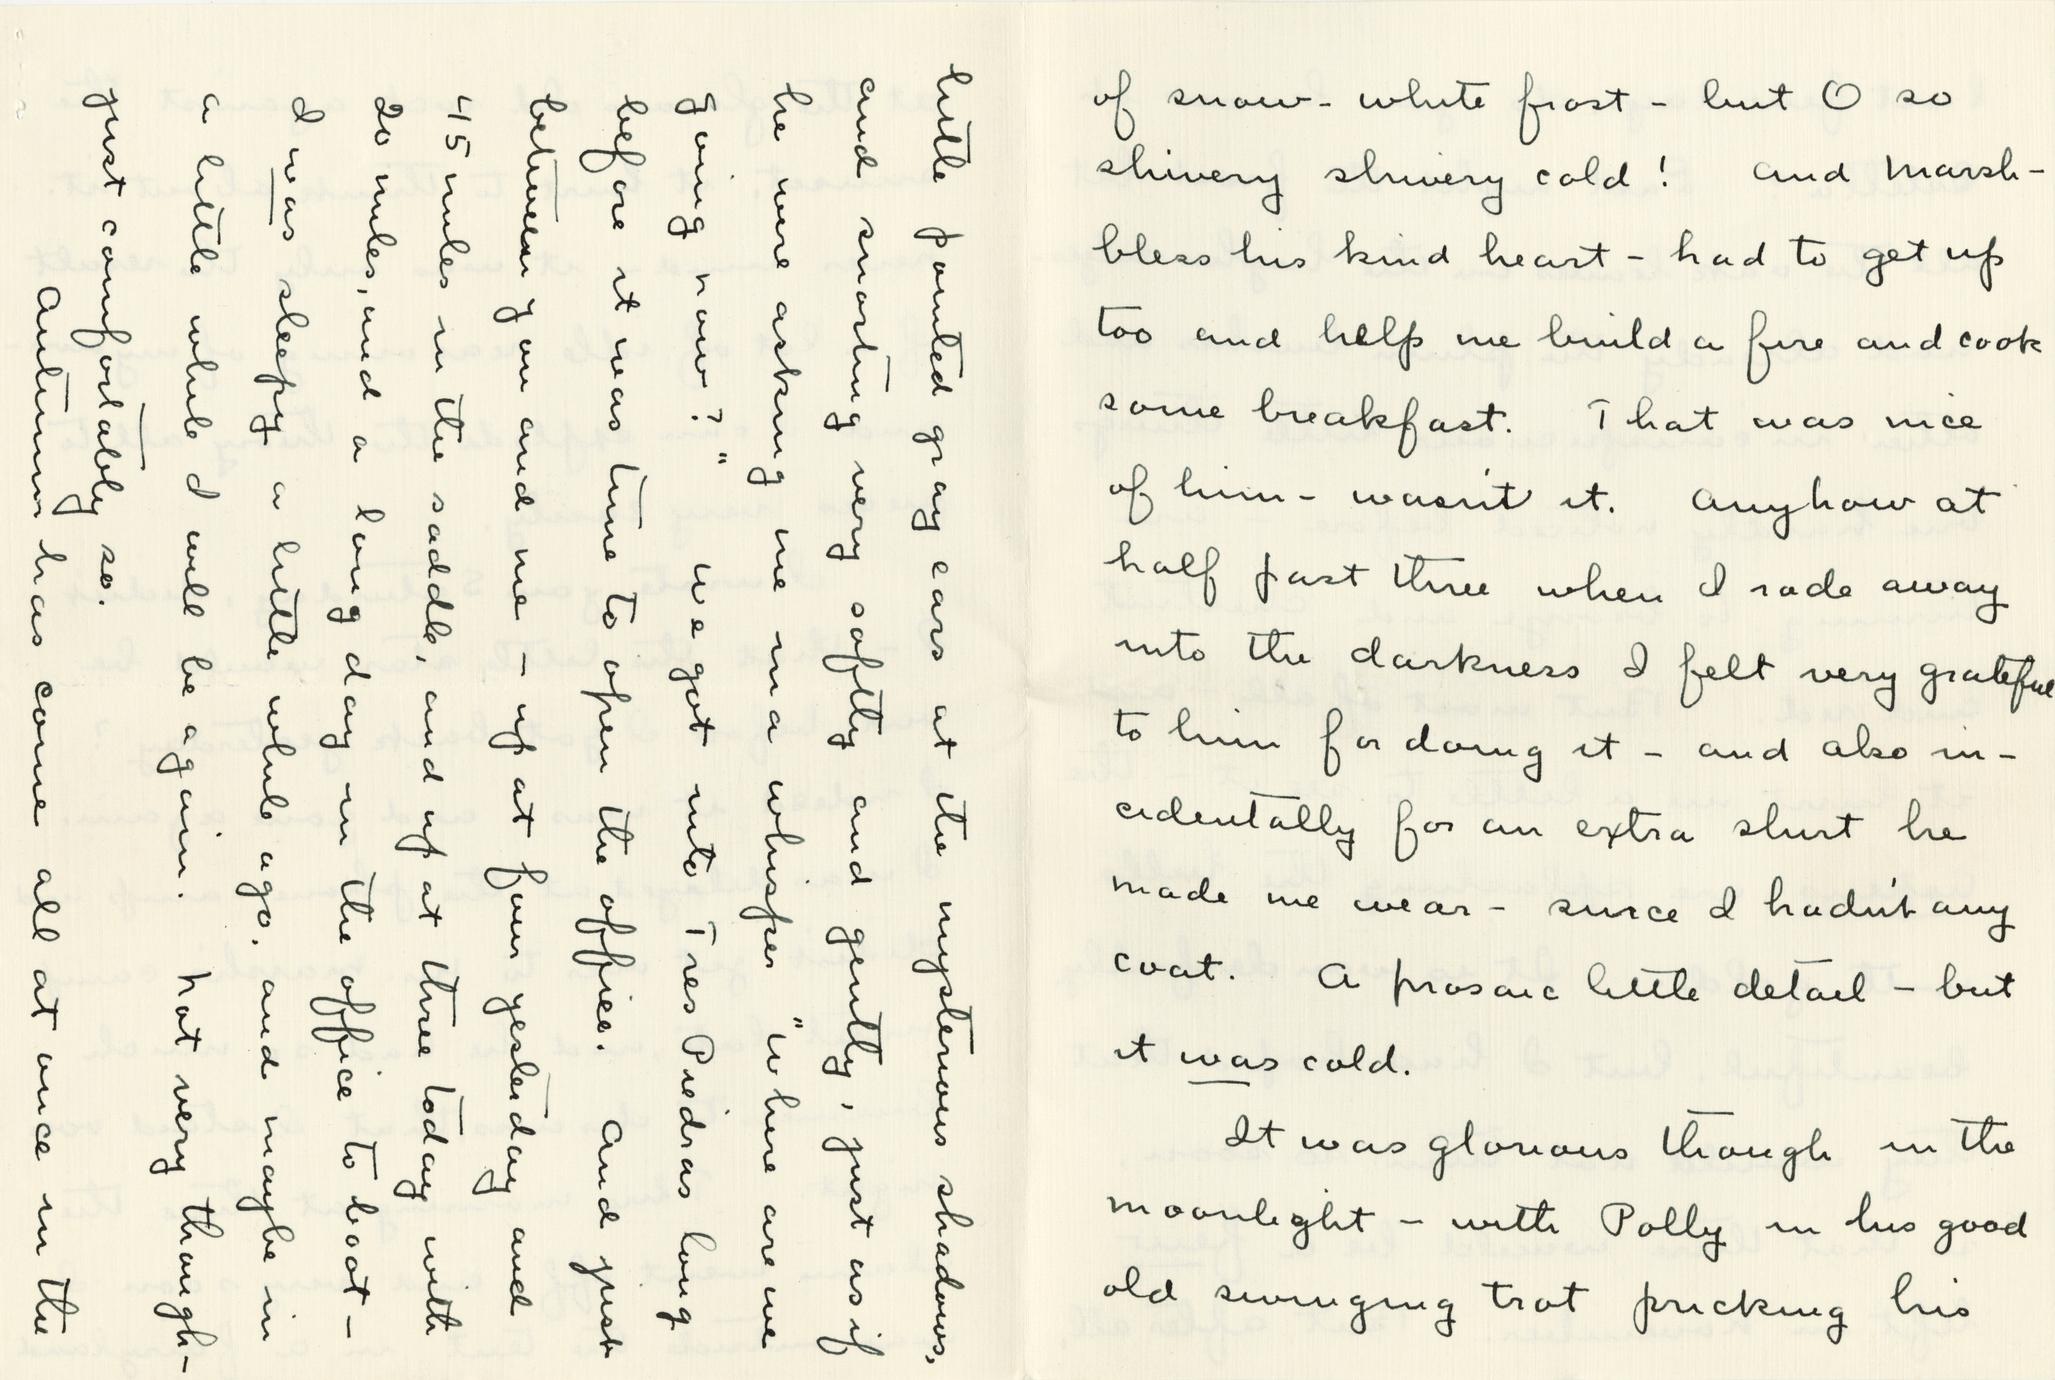 of snow-white frost - but O so
shivery shivery cold! And Marsh-
bless his kind heart - had to get up
too and help me build a fire and cook
some breakfast. That was nice
of him - wasn't it. Anyhow at
half past three when I rode away
into the darkness I felt very grateful
to him for doing it - and also in-
cidentally for an extra shirt he
made me wear - since I hadn't any
coat. A prosaic little detail - but
it was cold.
It was glorious though in the
moonlight - with Polly in his good
old swinging trot pricking his
little pointed gray ears at the mysterious shadows,
and snorting very softly and gently, just as if
he were asking me in a whisper "where are we
going now?" We got into Tres Piedras long
before it was time to open the office. And just
between you and me - up at four yesterday and
45 miles in the saddle, and up at three today with
20 miles, and a long day in the office to boot -
I was sleepy a little while ago, and maybe in
a little while I will be again. Not very though-
just comfortably so.
Autumn has come all at once in the